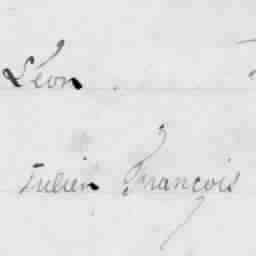 Léon
Julien François